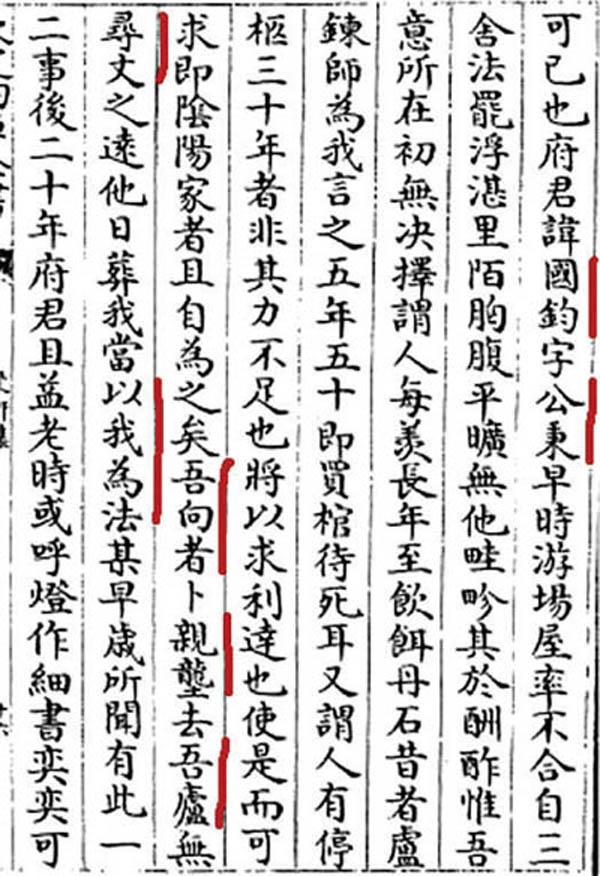 可已也府君諱國鈞字公秉早時游場屋率不合自三
舍法罷浮湛里陌胸腹平曠無他畦畛其於酬酢惟吾
意所在初無决擇謂人每羡長年至飲餌丹石昔者盧
鍊師為我言之五年五十即買棺待死耳又謂人有停
柩三十年者非其力不足也將以求利達也使是而可
求即陰陽家者且自為之矣吾向者卜親壟去吾廬無
尋丈之遠他日葬我當以我為法某早歲所聞有此一
二事後二十年府君且益老時或呼燈作細書奕奕可